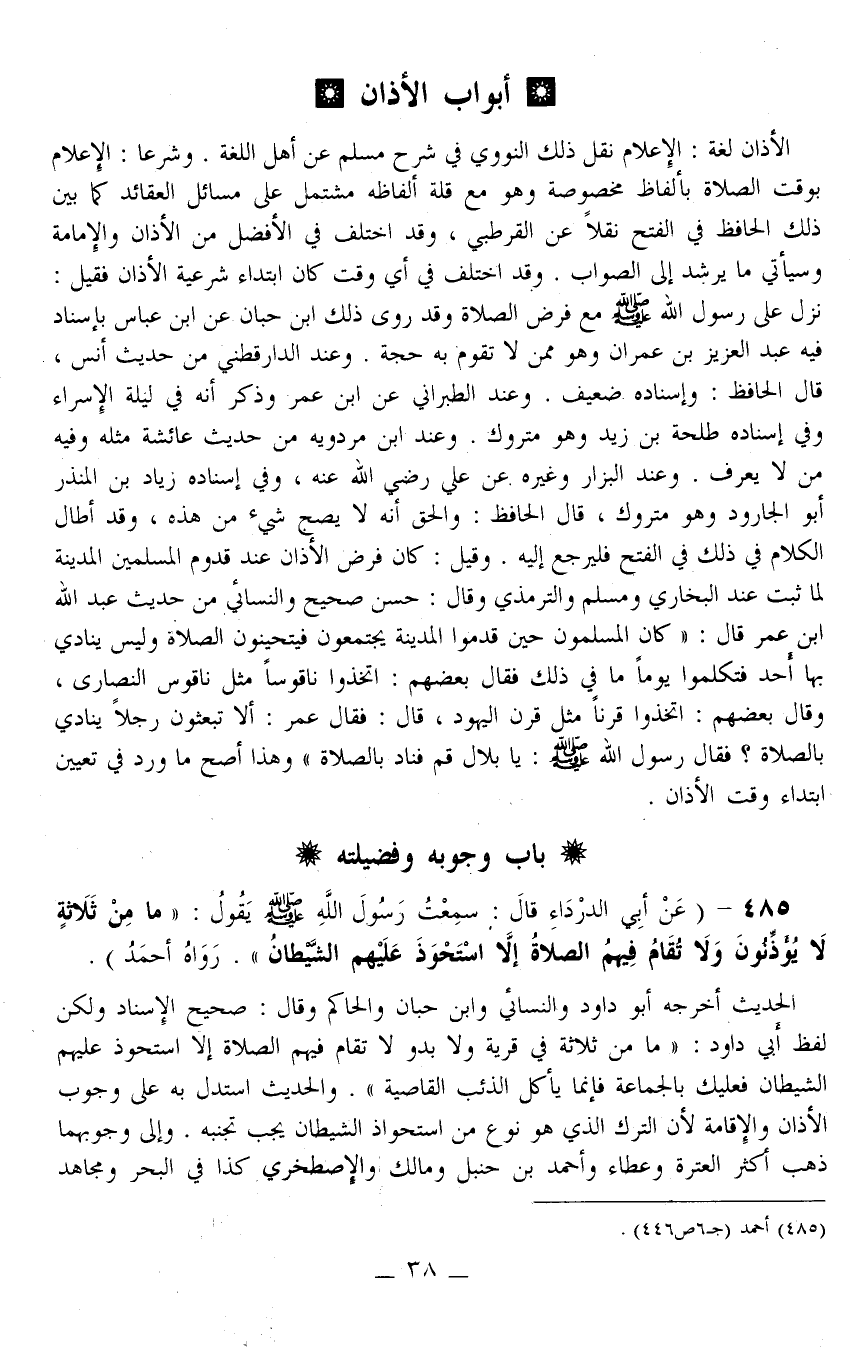 أبواب الأذان
الأذان لغة : الإعلام نقل ذلك النووي في شرح مسلم عن أهل اللغة . وشرعا : الإعلام
بوقت الصلاة بألفاظ مخصوصة وهو مع قلة ألفاظه مشتمل على مسائل العقائد كما بين
ذلك الحافظ في الفتح نقلاً عن القرطبي ، وقد اختلف في الأفضل من الأذان والإمامة
وسيأتي ما يرشد إلى الصواب . وقد اختلف في أي وقت كان ابتداء شرعية الأذان فقيل :
نزل على رسول الله ﷺ مع فرض الصلاة وقد روى ذلك ابن حبان عن ابن عباس بإسناد
فيه عبد العزيز بن عمران وهو ممن لا تقوم به حجة . وعند الدارقطني من حديث أنس ،
قال الحافظ : وإسناده ضعيف . وعند الطبراني عن ابن عمر وذكر أنه في ليلة الإسراء
وفي إسناده طلحة بن زيد وهو متروك . وعند ابن مردويه من حديث عائشة مثله وفيه
من لا يعرف . وعند البزار وغيره عن علي رضي الله عنه ، وفي إسناده زياد بن المنذر
أبو الجارود وهو متروك ، قال الحافظ : والحق أنه لا يصح شيء من هذه ، وقد أطال
الكلام في ذلك في الفتح فليرجع إليه . وقيل : كان فرض الأذان عند قدوم المسلمين المدينة
لما ثبت عند البخاري ومسلم والترمذي وقال : حسن صحيح والنسائي من حديث عبد الله
ابن عمر قال : « كان المسلمون حين قدموا المدينة يجتمعون فيتحينون الصلاة وليس ينادي
بها أحد فتكلموا يوماً ما في ذلك فقال بعضهم : اتخذوا ناقوساً مثل ناقوس النصارى ،
وقال بعضهم : اتخذوا قرناً مثل قرن اليهود ، قال : فقال عمر : ألا تبعثون رجلاً ينادي
بالصلاة ؟ فقال رسول الله ﷺ : يا بلال قم فناد بالصلاة » وهذا أصح ما ورد في تعيين
ابتداء وقت الأذان .
باب وجوبه وفضيلته
٤٨٥ – ( عَنْ أبِي الدرْدَاءِ قالَ : سمِعْتُ رَسُولَ اللَّهِ ﷺ يَقُولُ : « ما مِنْ ثَلَاثةٍ
لَا يُؤَذِّنُونَ وَلَا تُقَامُ فِيهِمُ الصلاةُ إلَّا اسْتَحْوَذَ عَلَيْهم الشَّيْطانُ » . رَوَاهُ أحمَدُ ) .
الحديث أخرجه أبو داود والنسائي وابن حبان والحاكم وقال : صحيح الإسناد ولكن
لفظ أبي داود : « ما من ثلاثة في قرية ولا بدو لا تقام فيهم الصلاة إلا استحوذ عليهم
الشيطان فعليك بالجماعة فإنما يأكل الذئب القاصية » . والحديث استدل به على وجوب
الأذان والإقامة لأن الترك الذي هو نوع من استحواذ الشيطان يجب تجنبه . وإلى وجوبهما
ذهب أكثر العترة وعطاء وأحمد بن حنبل ومالك والإصطخري كذا في البحر ومجاهد
(٤٨٥) أحمد (جـ٦ص٤٤٦) .
— ٣٨ —